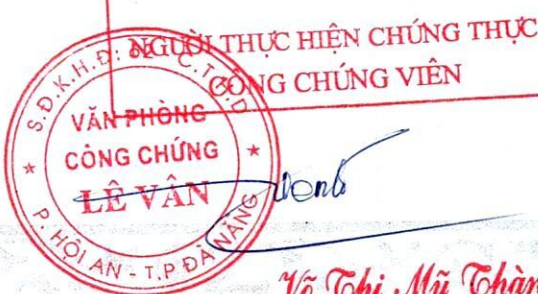 NGƯỜI THỰC HIỆN CHỨNG THỰC
CÔNG CHỨNG VIÊN
S.Đ.K.H.Đ:
C.T.Đ
VĂN PHÒNG
CÔNG CHỨNG
LÊ VÂN
P. HỘI AN - T.P ĐÀ NẴNG
Võ Thị Mỹ Thàn